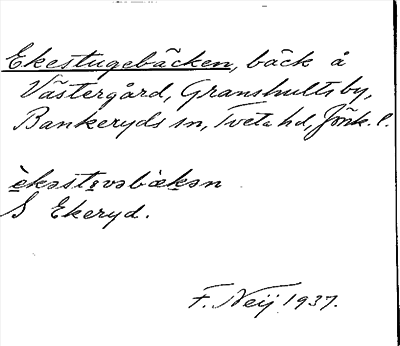 Ekestugebäcken, bäck å
Västergård, Granshults by,
Bankeryds sn, Tveta hd, Jönk. l.
èkəstɯvəbäkən
S Ekeryd.
F. Neij 1937.